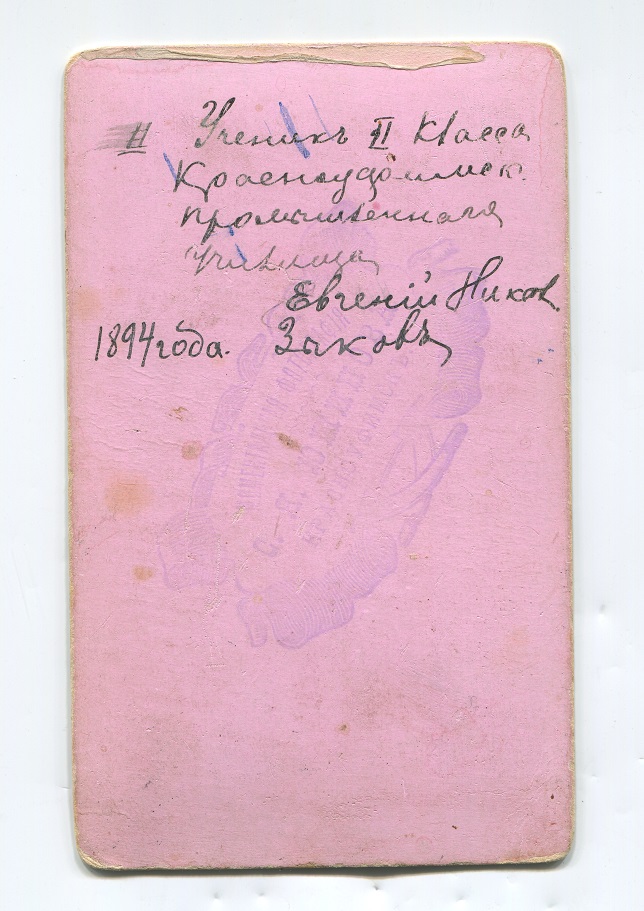 II Ученикъ II класса
Красноуфимск.
промышленнаго
училища
Евгеній Никол.
1894 года. Зыковъ